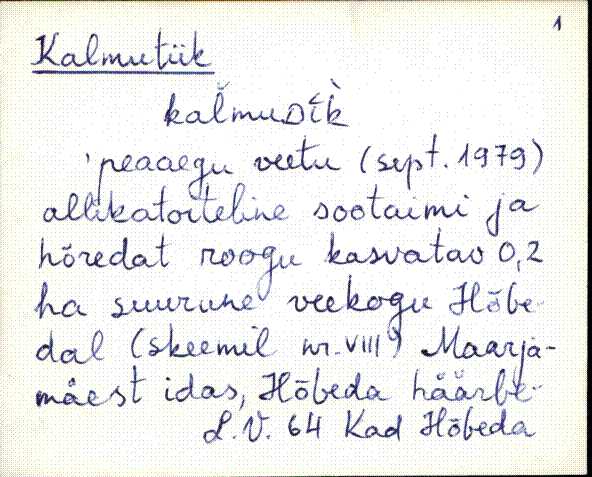 1
Kalmutiik
kal̆muDík̀
'peaaegu veetu (sept. 1979)
allikatoiteline sootaimi ja
hõredat roogu kasvatav 0,2
ha suurune veekogu Hõbe-
dal (skeemil nr. VIII) Maarja-
mäest idas, Hõbeda häärbe-
L.V. 64 Kad Hõbeda